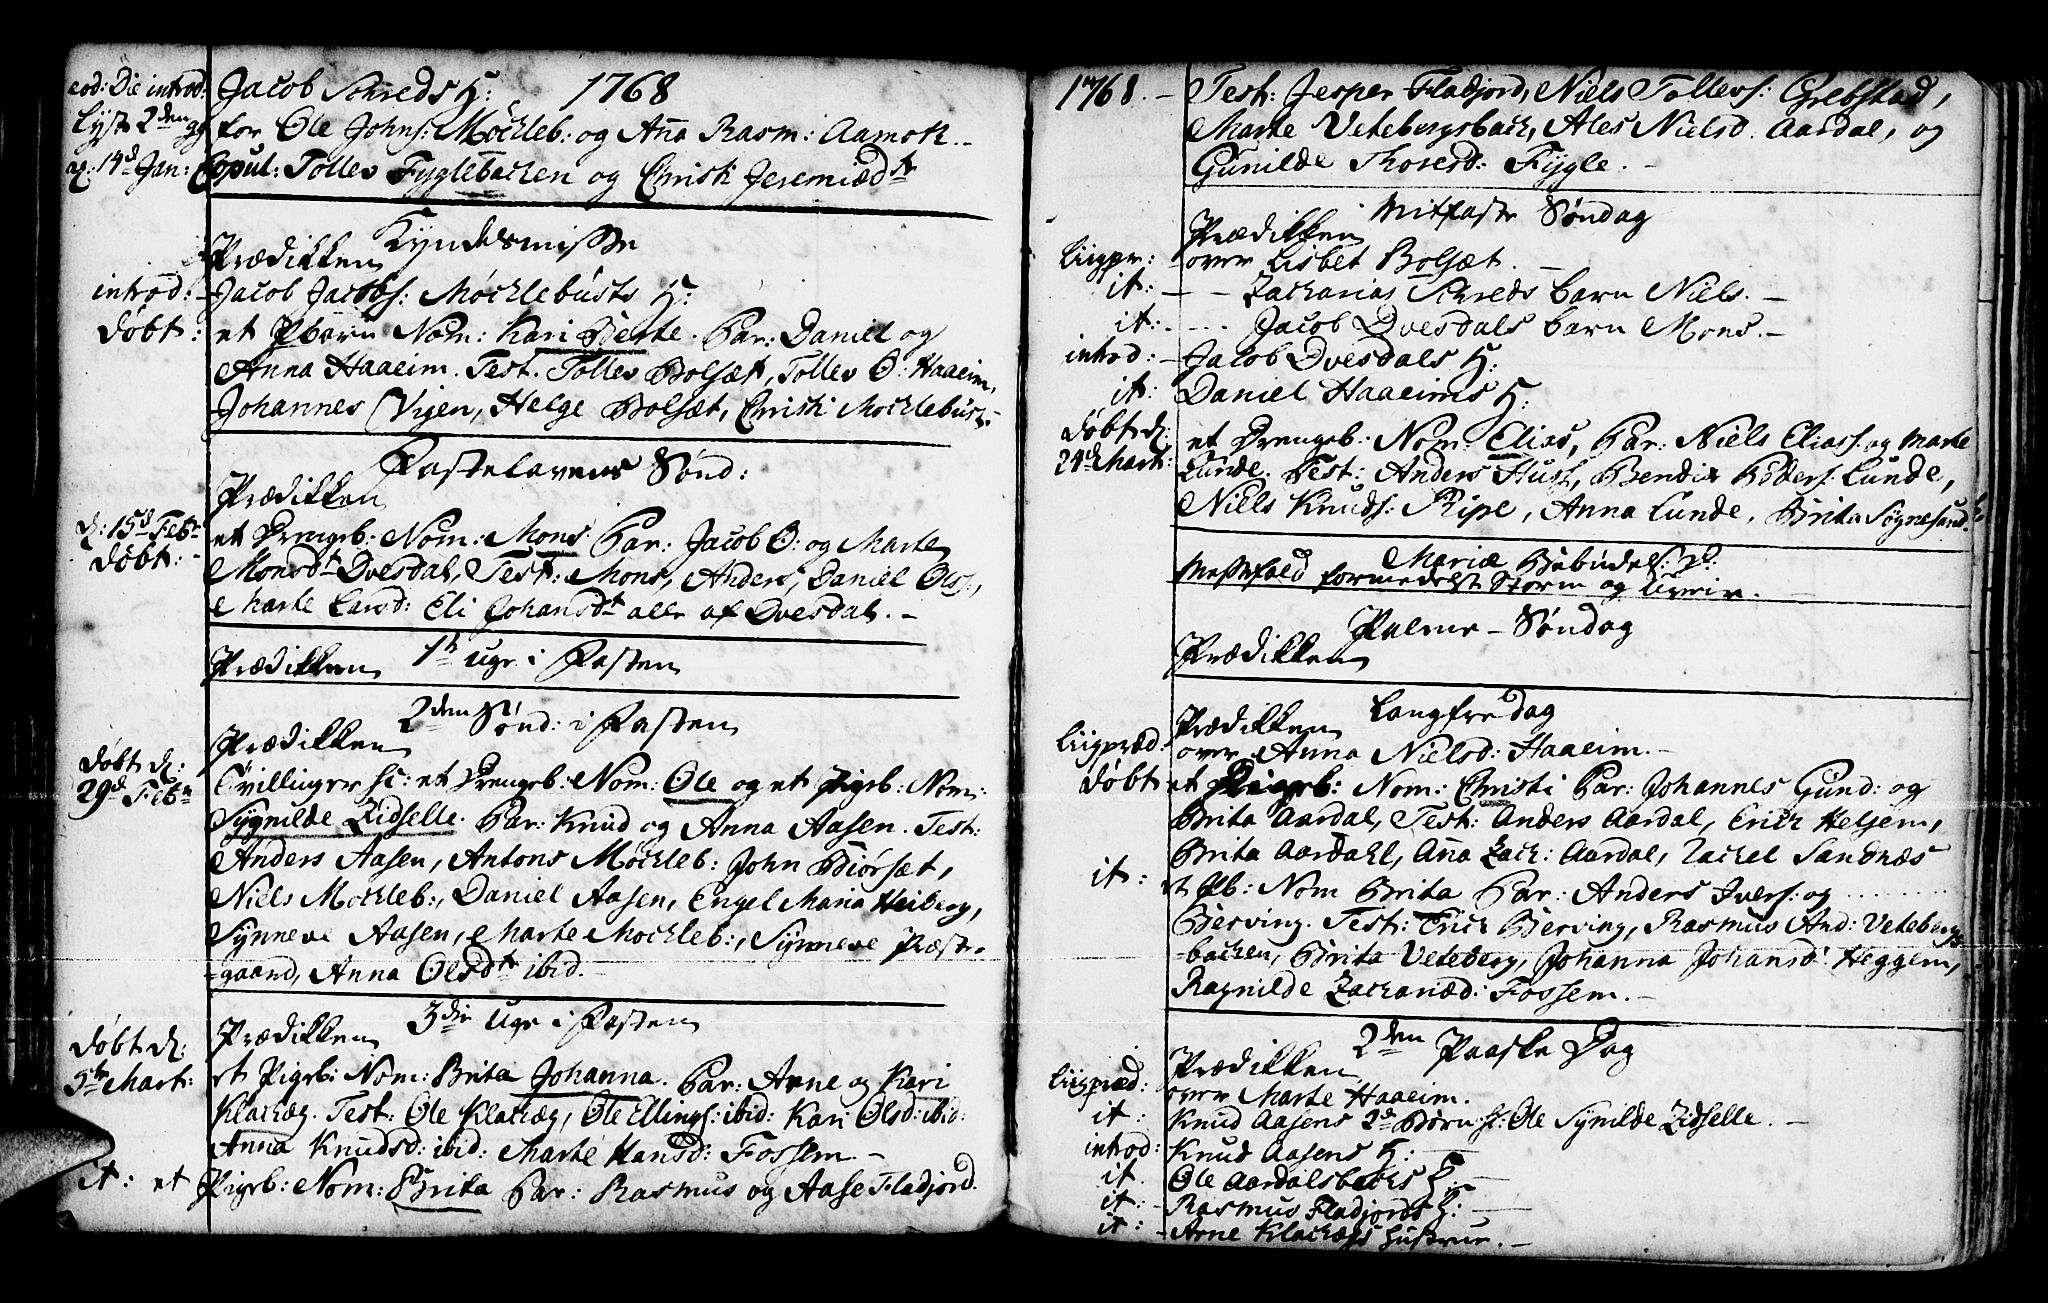 eod: Die introd: Jacob Schreds H: 1768
Lyst 2den gg for Ole Johns: Möckleb: og Anna Rasm: Aamot.-
d: 14d Jan: Copul: Tollev Fyglebacken og Christi Jeremiædtr
Kyndesmisse
Prædikken
introd: Jacob Jacobs: Möcklebusts H:
döbt: et Pbarn Nom: Kari Berte. Par: Daniel og
Anna Haaeim. Test. Tollev Bolsæt, Tollev O: Haaeim,
Johannes Vigen, Helge Bolsæt, Christi Mocklebust.-
Fastelavens Sönd:
Prædikken
d: 15d Febr
döbt: et Drengeb: Nom: Mons Par: Jacob O: og Marte
Monsdtr Dvesdal, Test: Mons, Anders, Daniel Ols:,
Marte Larsd: Eli Johansdtr alle af Dvesdal.-
1te Uge i Fasten
Prædikken
2den Sönd: i Fasten
Prædikken
döbt d:
29d Febr Tvillinger sc: et Drengeb: Nom: Ole og et Pigeb: Nom:
Sygnilde Zidselle. Par: Knud og Anna Aasen. Test:
Anders Aasen, Antons Möckleb: John Biörsæt,
Niels Möckleb:, Daniel Aasen, Engel Maria Heiberg,
Synneve Aasen, Marte Mockleb:, Synneve Præste-
-gaard, Anna Olsdtr ibid.-
3die Uge i Fasten
Prædikken
döbt d:
5te Mart: et Pigeb: Nom: Brita Johanna. Par: Arne og Kari
Klackæg. Test: Ole Klackæg, Ole Ellings: ibid: Kari Olsd: ibid:
Anna Knudsd: ibid: Marte Hansd: Fossem.-
it: et Pigeb: Nom: Brita Par: Rasmus og Aase Fladjord.
1768.- Test: Jesper Fladjord, Niels Tollevs: Grebstad,
Marte Vetebergsback, Ales Nielsd. Aardal, og
Gunilde Thoresd: Fygle.-
Mitfaste Söndag
Prædikken
Liigpr: over Lisbet Bolsæt.-
it: - - Zacharias Schreds barn Niels.-
it: - ... Jacob Dvesdals barn Mons.-
introd: - Jacob Dvesdals H:
it: Daniel Haaeims H:
döbt d:
24d Mart: et Drengeb: Nom: Elias, Par: Niels Elias: og Marte
Lunde. Test: Anders Hus:, Bendix Peders: Lunde,
Niels Knuds: Ripe, Anna Lunde, Brita Sögnesand.
Mariæ Bebudels: D:
Messefald formedelst Storm og Uveir.-
Palme-Söndag
Prædikken
Langfredag
Prædikken
Liigpræd: over Anna Nielsd: Haaeim.-
döbt et Pigeb: Nom: Christi Par: Johannes Gund: og
Brita Aardal, Test: Anders Aardal, Erick Helsem,
Brita Aardahl, Anna Zach: Aardal, Rachel Sandnæs
it: et Pb: Nom Brita Par: Anders Ivers: og .........
Berving. Test: Erick Berving, Rasmus And: Veteberg-
-backen, Brita Veteberg, Johanna Johansd: Heggem,
Ragnilde Zachariæd: Fossem.-
2den Paaske Dag
Prædikken
Liigpræd: over Marte Haaeim.
it: Knud Aasens 2de Börn sc: Ole Synilde Zidselle.-
introd: Knud Aasens H: -
it. Ole Aardalsbacks H: -
it: - Rasmus Fladjords H: -
it: - Arne Klackægs Hustrue.-